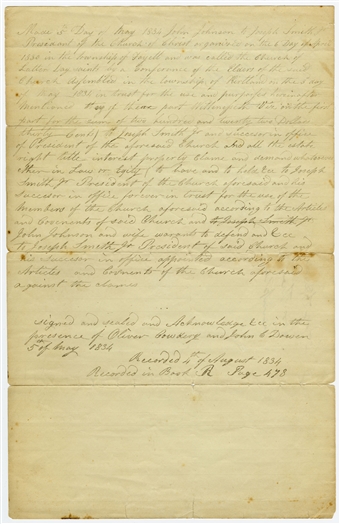 Made 5 Day of May 1834 John Johnson to Joseph Smith Jr
President of the Church of Christ organized on the 6 Day of April
1830 in the township of Fayette and was called the Church of
Latter Day Saints at a Conference of the Elders of the said
Church assembled in the township of Kirtland on the 3 day
May 1834 in trust for the use and purposes hereinafter
Mentioned of part Witnesseth &c the first
part for the sume of two hundred and twenty two Dollars
thirty Cents to Joseph Smith Jr and successor in office
of President of the aforesaid Church all the estate
right title interest property claims and demand whatsoever
in Law or Equity to have and to hold &c to Joseph
Smith Jr President of the Church aforesaid and his
successor in office forever in trust for the use of the
members of the Church aforesaid according to the articles
and Covenants of said Church and to Joseph Smith Jr
John Johnson and wife warants to defend and &c
to Joseph Smith Jr President of said Church and
his Successor in office appointed according to the
Articles and Covenants of the Church aforesaid
against the claims
signed and sealed and Acknowledge &c in the
presence of Oliver Cowdery and John C
5th of May 1834
Recorded 4th of August 1834
Recorded in Book R Page 478